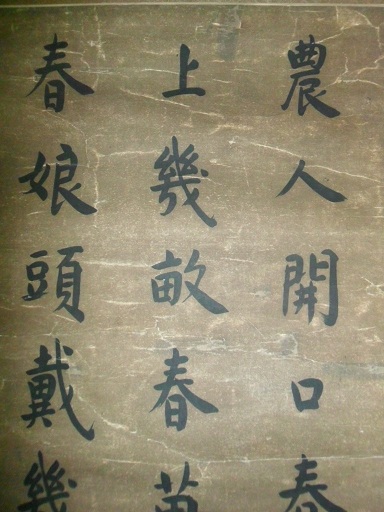 農人開口春
上幾畝春苗
春娘頭戴幾